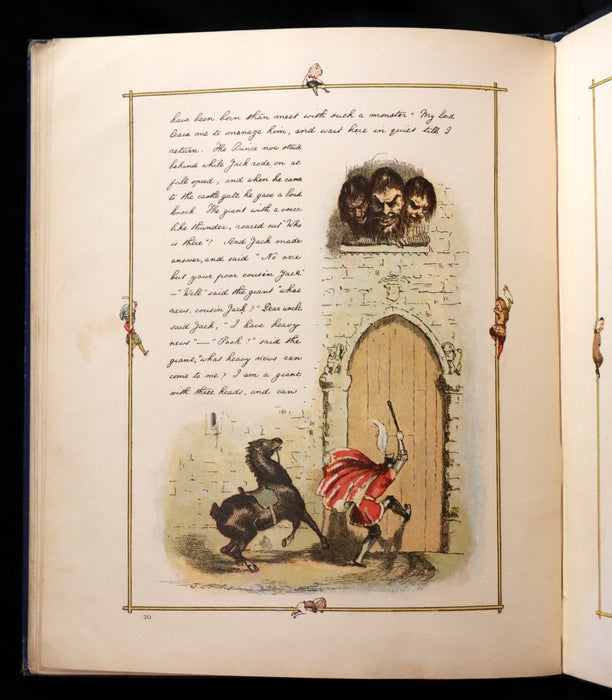 have been born than meet with such a monster" My Lad
leave me to manage him, and wait here in quiet till I
return. The Prince now staid
behind while Jack rode on at
full speed, and when he came
to the castle gate he gave a loud
knock The giant with a voice
like thunder, roared out "Who
is there"? And Jack made
answer, and said "No one
but your poor cousin Jack"
—"Well" said the giant "what
news, cousin Jack?" Dear uncle
said Jack, "I have heavy
news"—"Pooh!" said the
giant, "what heavy news can
come to me? I am a giant
with three heads, and can
20